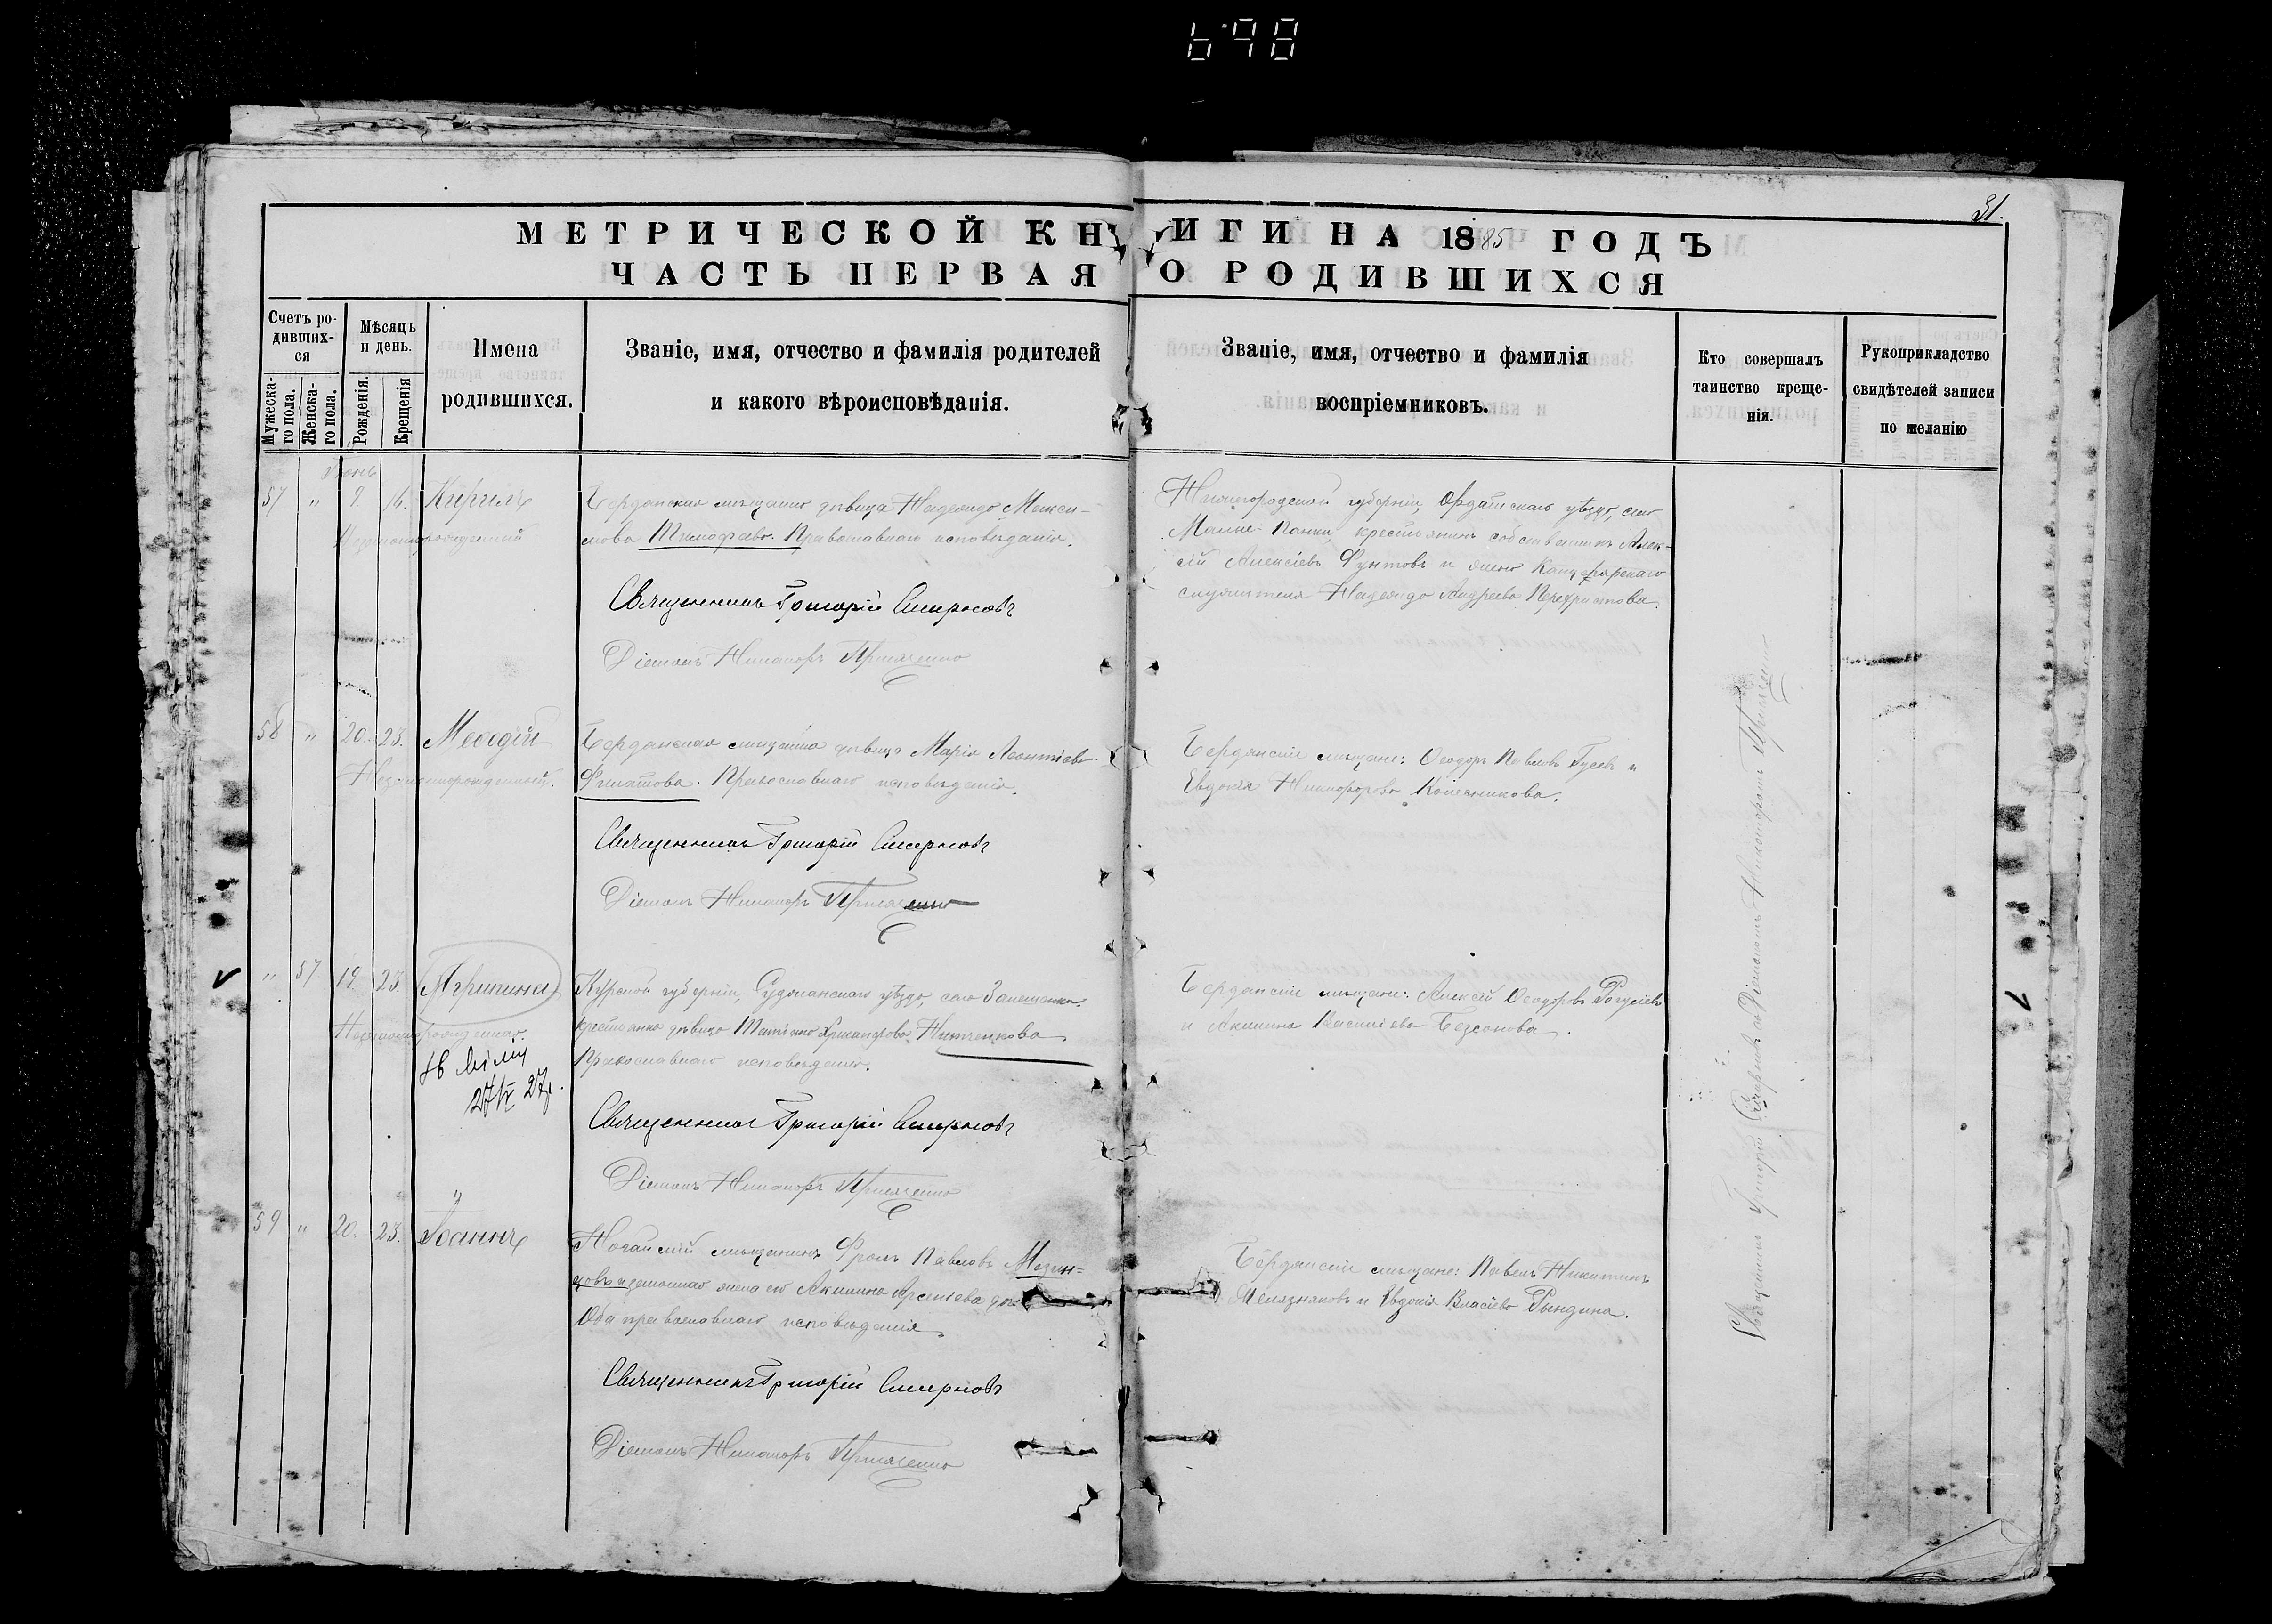 31.
МЕТРИЧЕСКОЙ КНИГИ НА 1885 ГОДЪ
ЧАСТЬ ПЕРВАЯ О РОДИВШИХСЯ
Счетъ ро-
дивших-
ся
Мужеска-
го пола.
Женска-
го пола.
Мѣсяцъ
и день.
Рожденія.
Крещенія
Имена
родившихся.
Званіе, имя, отчество и фамилія родителей
и какого вѣроисповѣданія.
Званіе, имя, отчество и фамилія
воспріемниковъ.
Кто совершалъ
таинство креще-
нія.
Рукоприкладство
свидѣтелей записи
по желанію
Іюнь
57 " 9. 16. Кирилъ
Незаконнорожденный
Бердянская мѣщанка дѣвица Надежда Макси-
мова Тимофеева. Православнаго исповѣданія.
Священникъ Григорій Смирновъ
Діаконъ Никаноръ
Нижегородской губерніи, Ардатскаго уѣзда, села
крестьянинъ собственникъ Алек-
сѣй Алексѣевъ Фунтовъ и жена Канцелярскаго
служителя Надежда Андреева
58 " 20. 23.
Незаконнорожденный.
Бердянская мѣщанка дѣвица Марія Леонтіева
Филатова. Православнаго исповѣданія.
Священникъ Григорій Смирновъ
Діаконъ Никаноръ
Бердянскіе мѣщане: Ѳеодоръ Павловъ Гусевъ и
Евдокія Никифорова Колесникова.
" 57 19. 23. Агрипина
Незаконнорожденная.
27/IX 27р.
Курской губерніи, Суджанскаго уѣзда, села
крестьянка дѣвица Татіана Никитенкова
Православнаго исповѣданія.
Священникъ Григорій Смирновъ
Діаконъ Никаноръ
Бердянскіе мѣщане: Алексѣй Ѳеодоровъ
и Акилина Василіева Безсонова.
59 " 20. 23. Іоаннъ
Ногайскій мѣщанинъ Фролъ Павловъ Мезин-
цовъ и законная жена его Акилина Арсеніева
Оба православнаго исповѣданія.
Священникъ Григорій Смирновъ
Діаконъ Никаноръ
Бердянскіе мѣщане: Павелъ Никитинъ
Желязняковъ и Евдокія Власіева Рындина.
Священникъ Григорій Смирновъ съ Діакономъ Никаноромъ